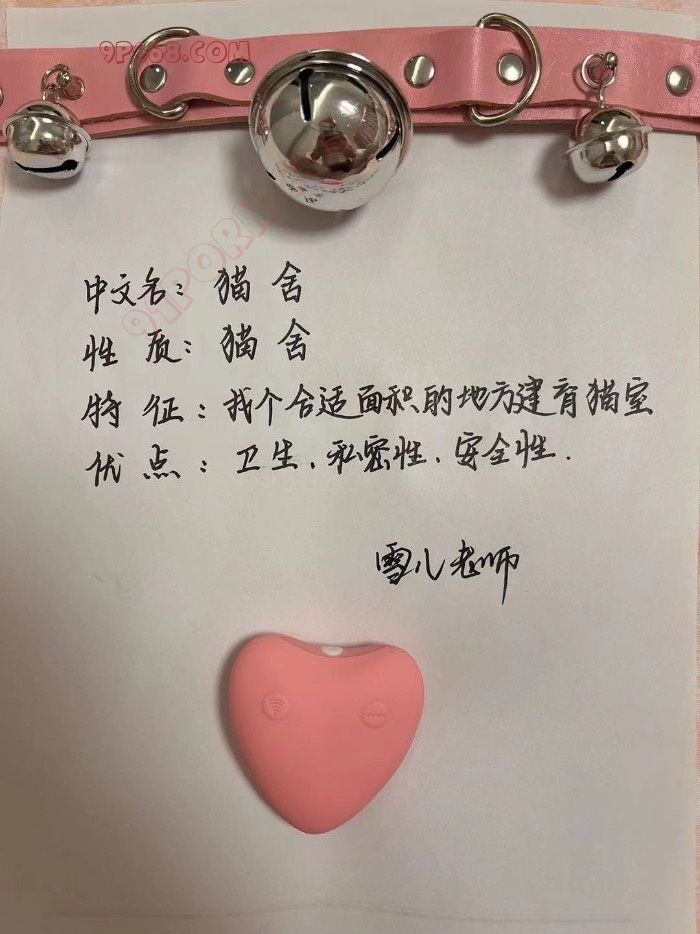 9P168.COM
91PORN
中文名：猫舍
性质：猫舍
特征：找个合适面积的地方建育猫室
优点：卫生、私密性、安全性.
雪儿老师